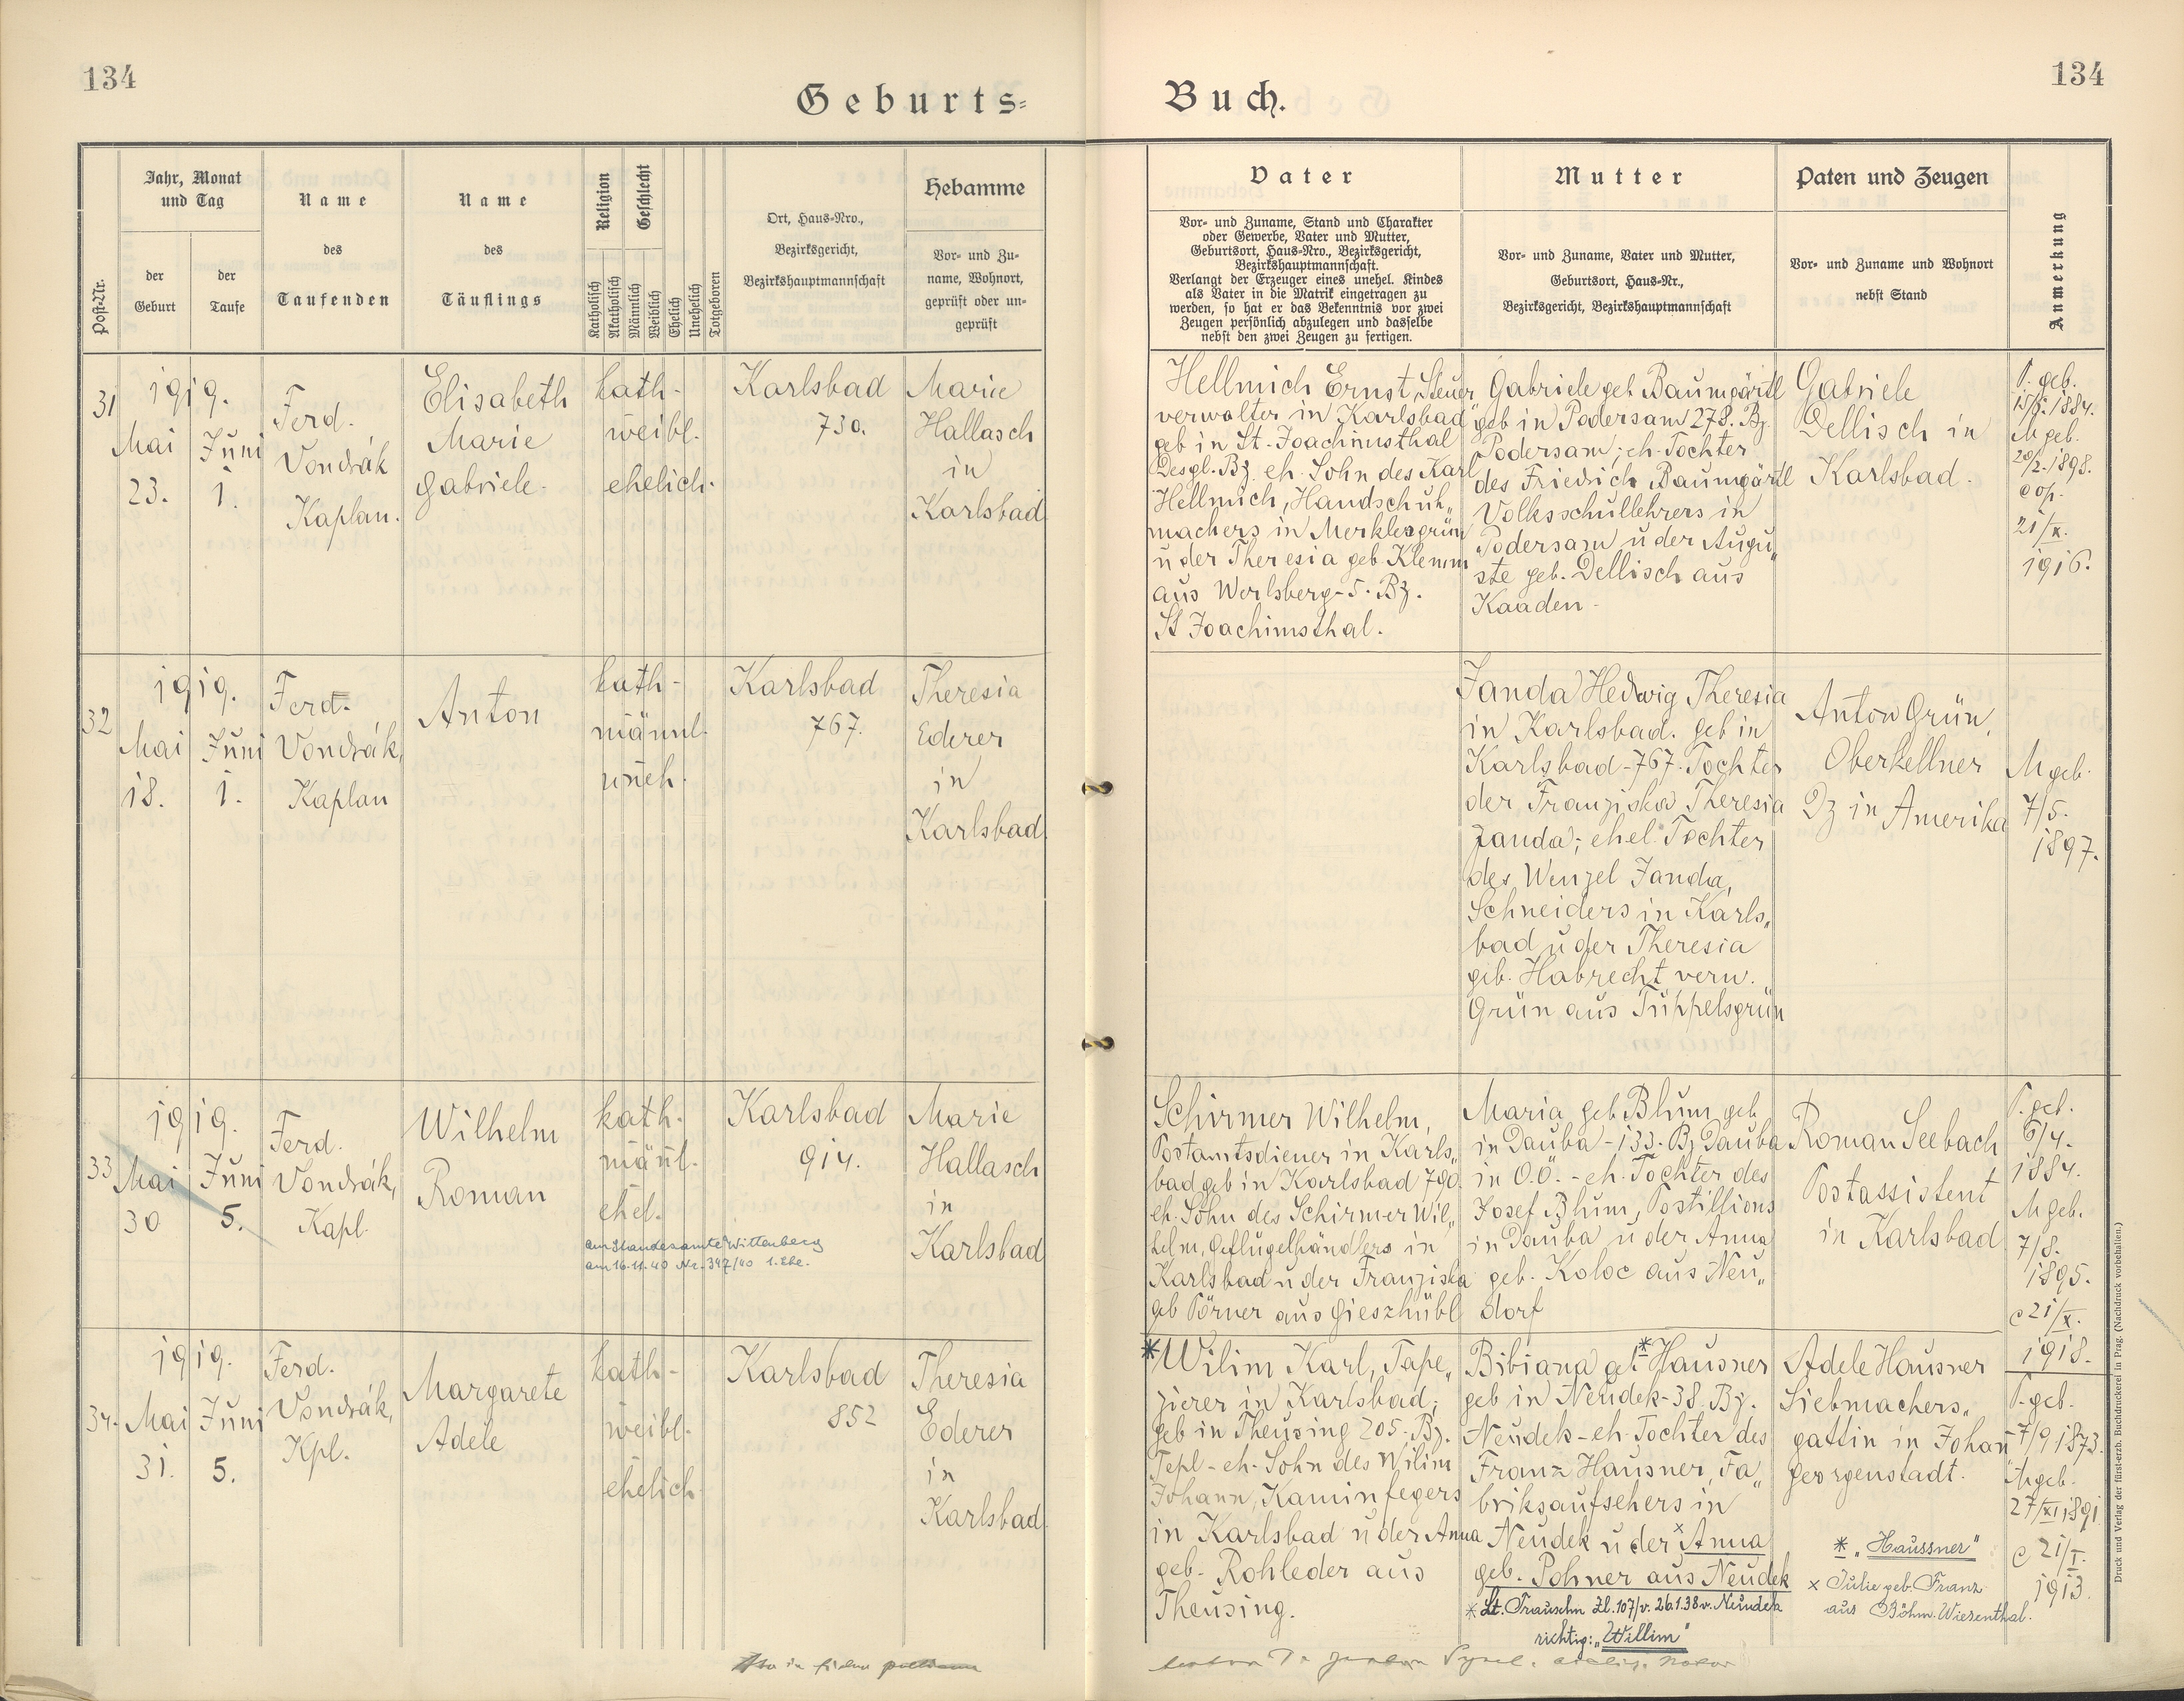 134
Geburts=
Jahr, Monat
und Tag
Name
Name
Religion
Geschlecht
Hebamme
Post-Nr.
der
Geburt
der
Taufe
des
Taufenden
des
Täuflings
Katholisch
Akatholisch
Männlich
Weiblich
Ehelich
Unehelich
Totgeboren
Ort, Haus-Nro.,
Bezirksgericht,
Bezirkshauptmannschaft
Vor- und Zu-
name, Wohnort,
geprüft oder un-
geprüft
31
1919.
Mai
23.
Juni
1.
Ferd.
Vondrák
Kaplan.
Elisabeth
Marie
Gabriele.
kath-
weibl.
ehelich.
Karlsbad
730.
Marie
Hallasch
in
Karlsbad
32
1919.
Mai
18.
Juni
1.
Ferd.
Vondrák,
Kaplan
Anton
kath-
männl.
uneh.
Karlsbad
767.
Theresia
Ederer
in
Karlsbad.
33
1919.
Mai
30
Juni
5.
Ferd.
Vondrák,
Kapl.
Wilhelm
Roman
kath.
mäñl.
ehel.
am Standesamte Wittenberg
am 16.11.40 Nr. 347/40 1. Ehe.
Karlsbad
914.
Marie
Hallasch
in
Karlsbad
34.
1919.
Mai
31.
Juni
5.
Ferd.
Vondrák,
Kpl.
Margarete
Adele
kath-
weibl.
ehelich
Karlsbad
852
Theresia
Ederer
in
Karlsbad.
Buch.
134
Vater
Mutter
Paten und Zeugen
Anmerkung
Vor- und Zuname, Stand und Charakter
oder Gewerbe, Vater und Mutter,
Geburtsort, Haus-Nro., Bezirksgericht,
Bezirkshauptmannschaft.
Verlangt der Erzeuger eines unehel. Kindes
als Vater in die Matrik eingetragen zu
werden, so hat er das Bekenntnis vor zwei
Zeugen persönlich abzulegen und dasselbe
nebst den zwei Zeugen zu fertigen.
Vor- und Zuname, Vater und Mutter,
Geburtsort, Haus-Nr.,
Bezirksgericht, Bezirkshauptmannschaft
Vor- und Zuname und Wohnort
nebst Stand
Hellmich Ernst, Steuer
verwalter in Karlsbad
geb in St. Joachimsthal
Desgl. Bz. eh. Sohn des Karl
Hellmich, Handschuh„
machers in Merklesgrün
u der Theresia geb. Klemm
aus Werlsberg-5. Bz.
St Joachimsthal.
Gabriele geb Baumgärtl
geb in Podersam 278. Bz.
Podersam; eh. Tochter
des Friedrich Baumgärtl
Volksschullehrers in
Podersam u der Augu„
ste geb. Dellisch aus
Kaaden-
Gabriele
Dellisch in
Karlsbad.
P. geb.
M geb.
20/2.1898.
cop.
21/X.
1916.
Janda Hedwig Theresia
in Karlsbad. geb in
Karlsbad-767. Tochter
der Franziska Theresia
Janda; ehel. Tochter
des Wenzel Janda,
Schneiders in Karls„
bad u der Theresia
geb. Habrecht verw.
Grün aus Tüppelsgrün
Anton Grün,
Oberkellner
Dz in Amerika
M geb.
7/5.
1897.
Schirmer Wilhelm,
Postamtsdiener in Karls„
bad geb in Karlsbad 790.
eh. Sohn des Schirmer Wil„
helm, Geflügelhändlers in
Karlsbad u der Franziska
geb Pörner aus Gieszhübl
Maria geb Blum geb
in Dauba-133. Bz Dauba
in O.Ö. - eh. Tochter des
Josef Blum, Postillions
in Dauba u der Anna
geb. Koloc aus Neu„
dorf
Roman Seebach
Postassistent
in Karlsbad
P. geb.
6/4.
1884.
M geb.
7/8.
1895.
c 21/X.
1918.
*Wilim Karl, Tape„
zierer in Karlsbad;
geb in Theusing 205. Bz.
Tepl-eh. Sohn des Wilim
Johann, Kaminfegers
in Karlsbad u der Anna
geb. Rohleder aus
Theusing.
Bibiana geb *Hausner
geb in Neudek-38. Bz.
Neudek-eh. Tochter des
Franz Hausner, Fa„
briksaufsehers in
Neudek u der ×Anna
geb. Pohner aus Neudek
* Lt. Trauschn Zl. 107/v. 26.1.38 v. Neudek
richtig: „Willim"
Adele Hausner
Siebmachers„
gattin in Johañ
georgenstadt.
* „Haussner"
× Julie geb. Franz
aus Böhm. Wiesenthal.
P. geb.
7/9 1873.
M geb.
27/XI 1891
c 21/I.
1913.
Druck und Verlag der fürst-erzb. Buchdruckerei in Prag. (Nachdruck vorbehalten.)